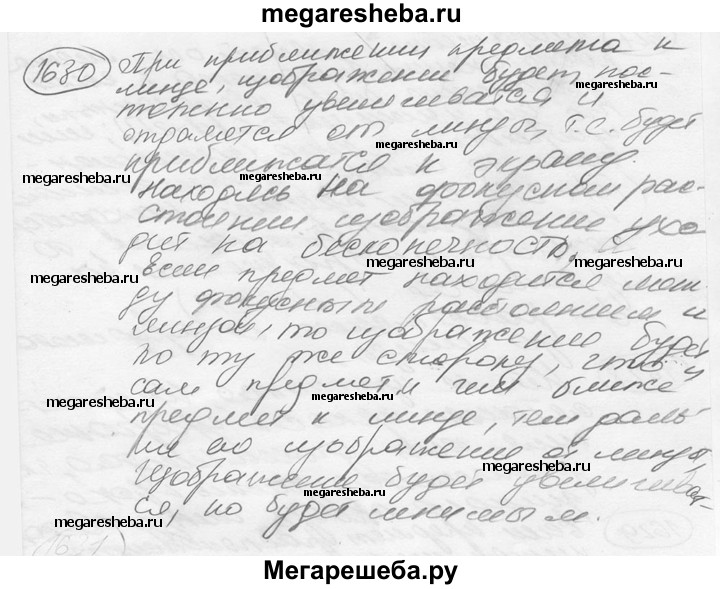 megaresheba.ru
1680 При приближении предмета к
линзе, изображение будет пос-
тоянно увеличиватся и
megaresheba.ru
отдалятся от линзы, т.е. будет
megaresheba.ru
приближатся к экрану.
megaresheba.ru
Находясь на фокусном рас-
стоянии изображение ухо
дит на бесконечность,
megaresheba.ru
megaresheba.ru
megaresheba.ru
Если предмет находится меж-
ду фокусным расстоянием и
линзой, то изображение будет
по ту же сторону, что и
сам предмет и чем ближе
megaresheba.ru
megaresheba.ru
предмет к линзе, тем даль-
ше во изображение от линзы,
megaresheba.ru
изображение будет увеличиват-
megaresheba.ru
ся, но будет мнимым.
megaresheba.ru
1681
Мегарешеба.ру